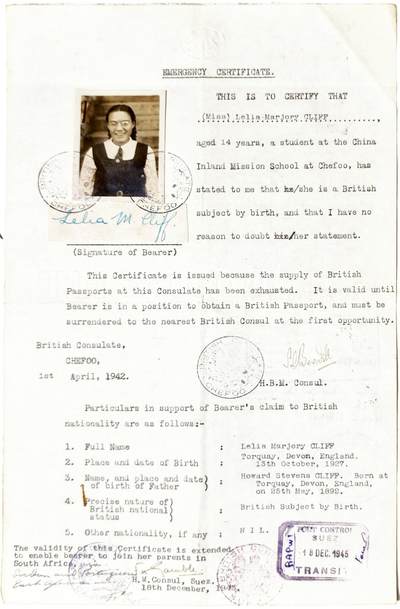 EMERGENCY CERTIFICATE.
THIS IS TO CERTIFY THAT
(Miss) Lelia Marjory CLIFF
aged 14 years, a student at the China
Inland Mission School at Chefoo, has
stated to me that he/she is a British
subject by birth, and that I have no
reason to doubt his/her statement.
CHEFOO
CHEFOO
Lelia M Cliff
(Signature of Bearer)
This Certificate is issued because the supply of British
Passports at this Consulate has been exhausted. It is valid until
Bearer is in a position to obtain a British Passport, and must be
surrendered to the nearest British Consul at the first opportunity.
British Consulate,
CHEFOO,
1st April, 1942.
CHEFOO
H.B.M. Consul.
Particulars in support of Bearer's claim to British
nationality are as follows:-
1. Full Name : Lelia Marjory CLIFF
2. Place and date of Birth : Torquay, Devon, England.
13th October, 1927.
3. Name, and place and date) of birth of Father ) : Howard Stevens CLIFF. Born at
Torquay, Devon, England,
on 25th May, 1892.
4. Precise nature of) British national ) status ) : British Subject by Birth.
5. Other nationality, if any : N I L.
The validity of this Certificate is extended
to enable bearer to join her parents in
South Africa,
H.M. Consul, Suez.
18th December, 1945.
PORT CONTROL
SUEZ
RAPWI
18 DEC. 1945
TRANSIT